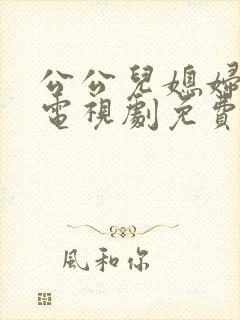 公公兒媳婦
電視劇免費
風和你